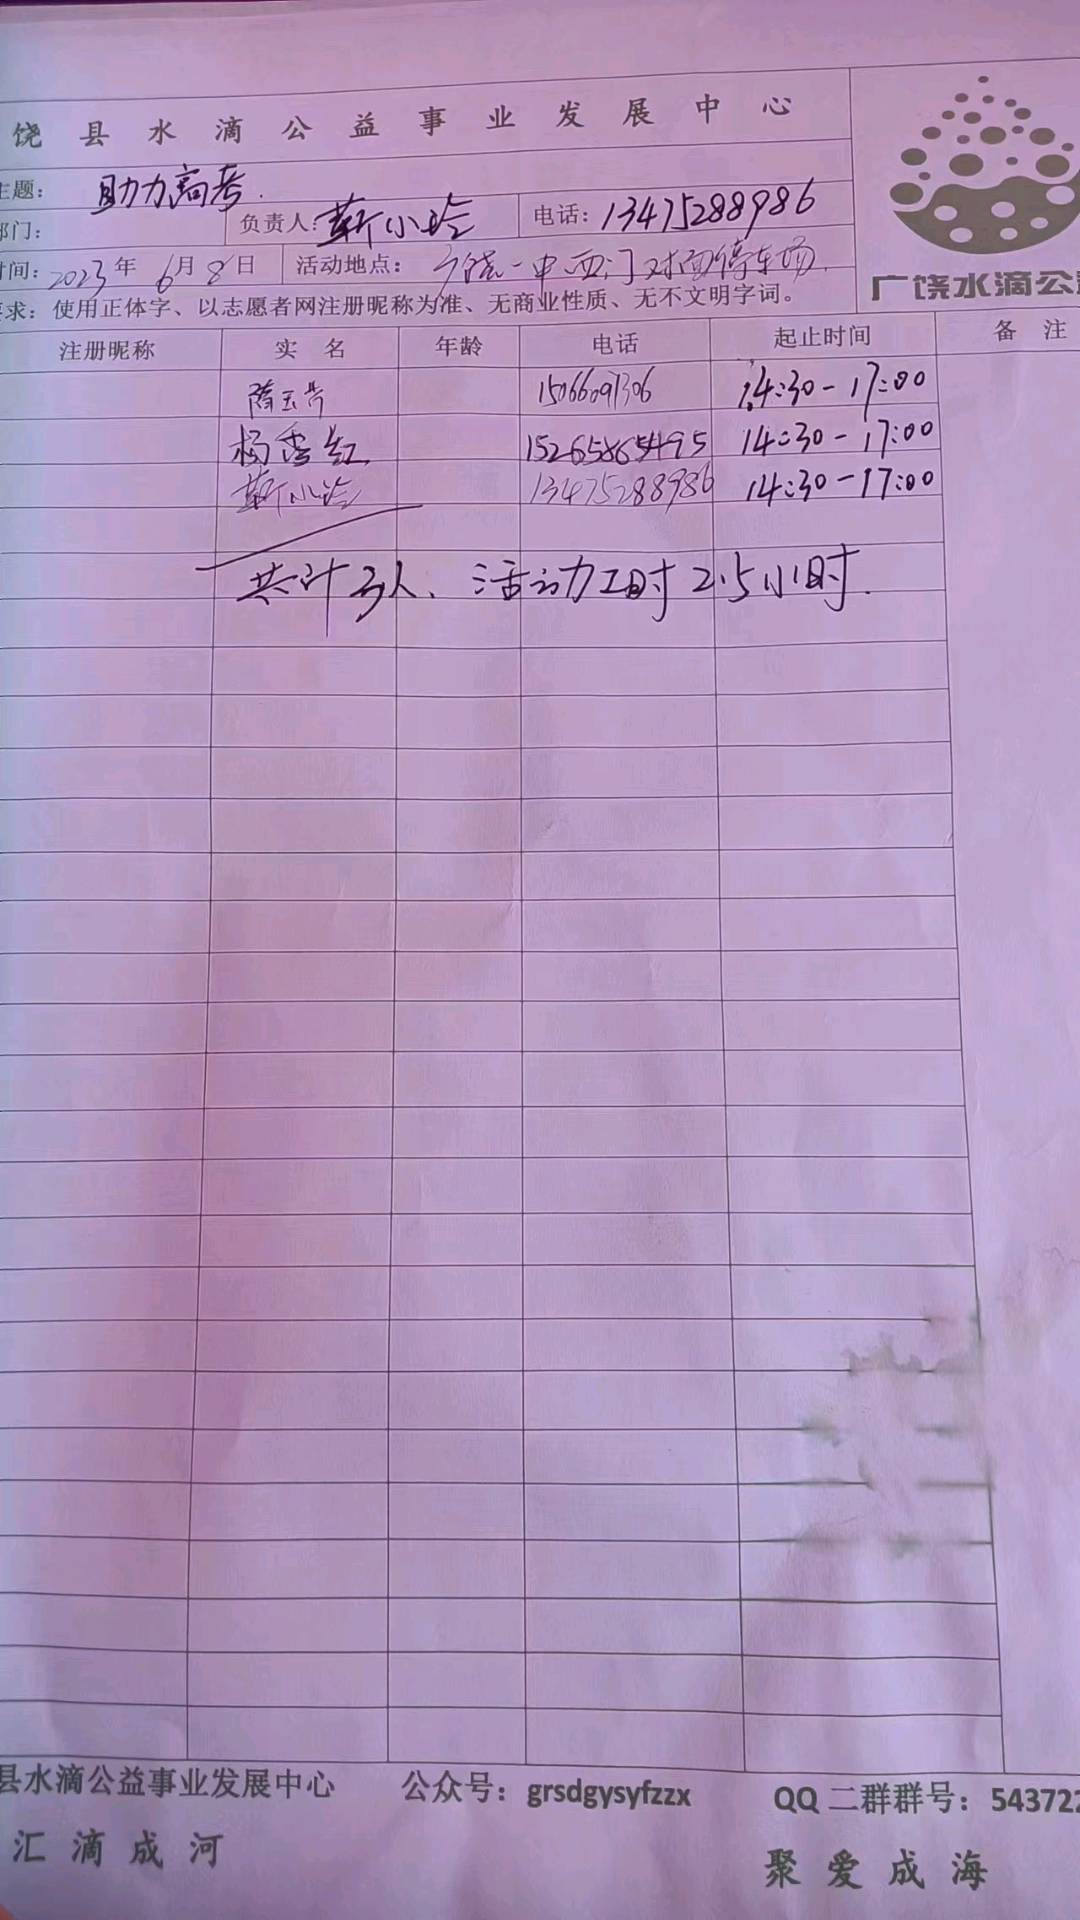 饶县水滴公益事业发展中心
主题： 助力高考.
部门： 负责人：靳小玲 电话：13475288986
时间：2023年6月8日 活动地点：广饶一中西门对面停车场.
要求：使用正体字、以志愿者网注册昵称为准、无商业性质、无不文明字词。
广饶水滴公
注册昵称 实 名 年龄 电话 起止时间 备 注
隋玉芳 15066091306 14:30-17:00
杨秀红 15265865495 14:30-17:00
靳小玲 13475288986 14:30-17:00
共计3人、活动工时2.5小时.
县水滴公益事业发展中心 公众号：grsdgysyfzzx QQ二群群号：543722
汇滴成河 聚爱成海